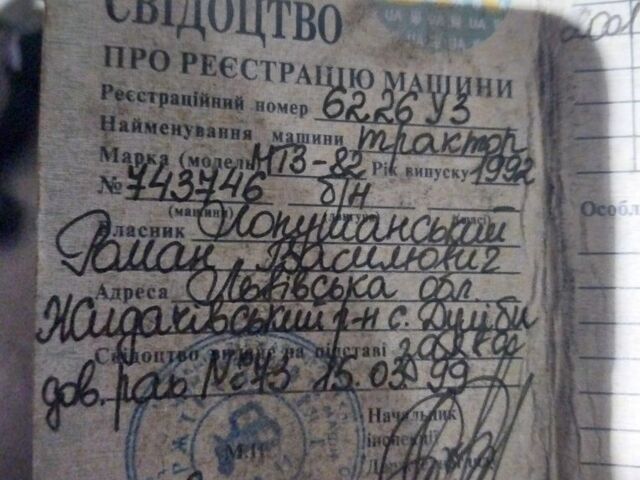 СВІДОЦТВО
ПРО РЕЄСТРАЦІЮ МАШИНИ
Реєстраційний номер 6226 УЗ
Найменування машини трактор
Марка (модель) МТЗ-82 Рік випуску 1992
№ 743746 б/н –
(машини) (двигуна) (шасі)
Власник Лопушанський
Роман Василович
Адреса Львівська обл
Жидачівський р-н с. Дуліби
Свідоцтво видане на підставі
дов. рах №73 15.03.99
Начальник
М.П. інспекції
Особл
2001